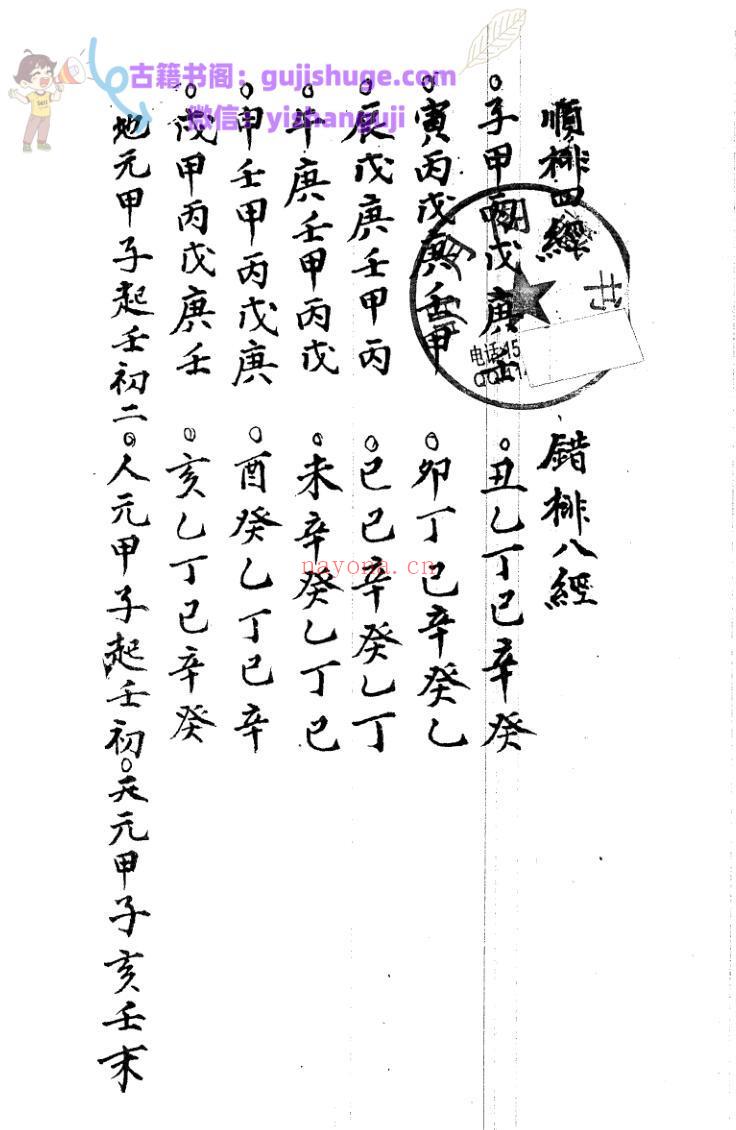 順排四經　錯排八經
○子甲丙戊庚壬　○丑乙丁己辛癸
○寅丙戊庚壬甲　○卯丁己辛癸乙
○辰戊庚壬甲丙　○巳己辛癸乙丁
○午庚壬甲丙戊　○未辛癸乙丁己
○申壬甲丙戊庚　○酉癸乙丁己辛
○戌甲丙戊庚壬　○亥乙丁己辛癸
地元甲子起壬初二○人元甲子起壬初○天元甲子亥壬末
古籍书阁：gujishuge.com
微信：yishanguji
nayona.cn
书
电话45